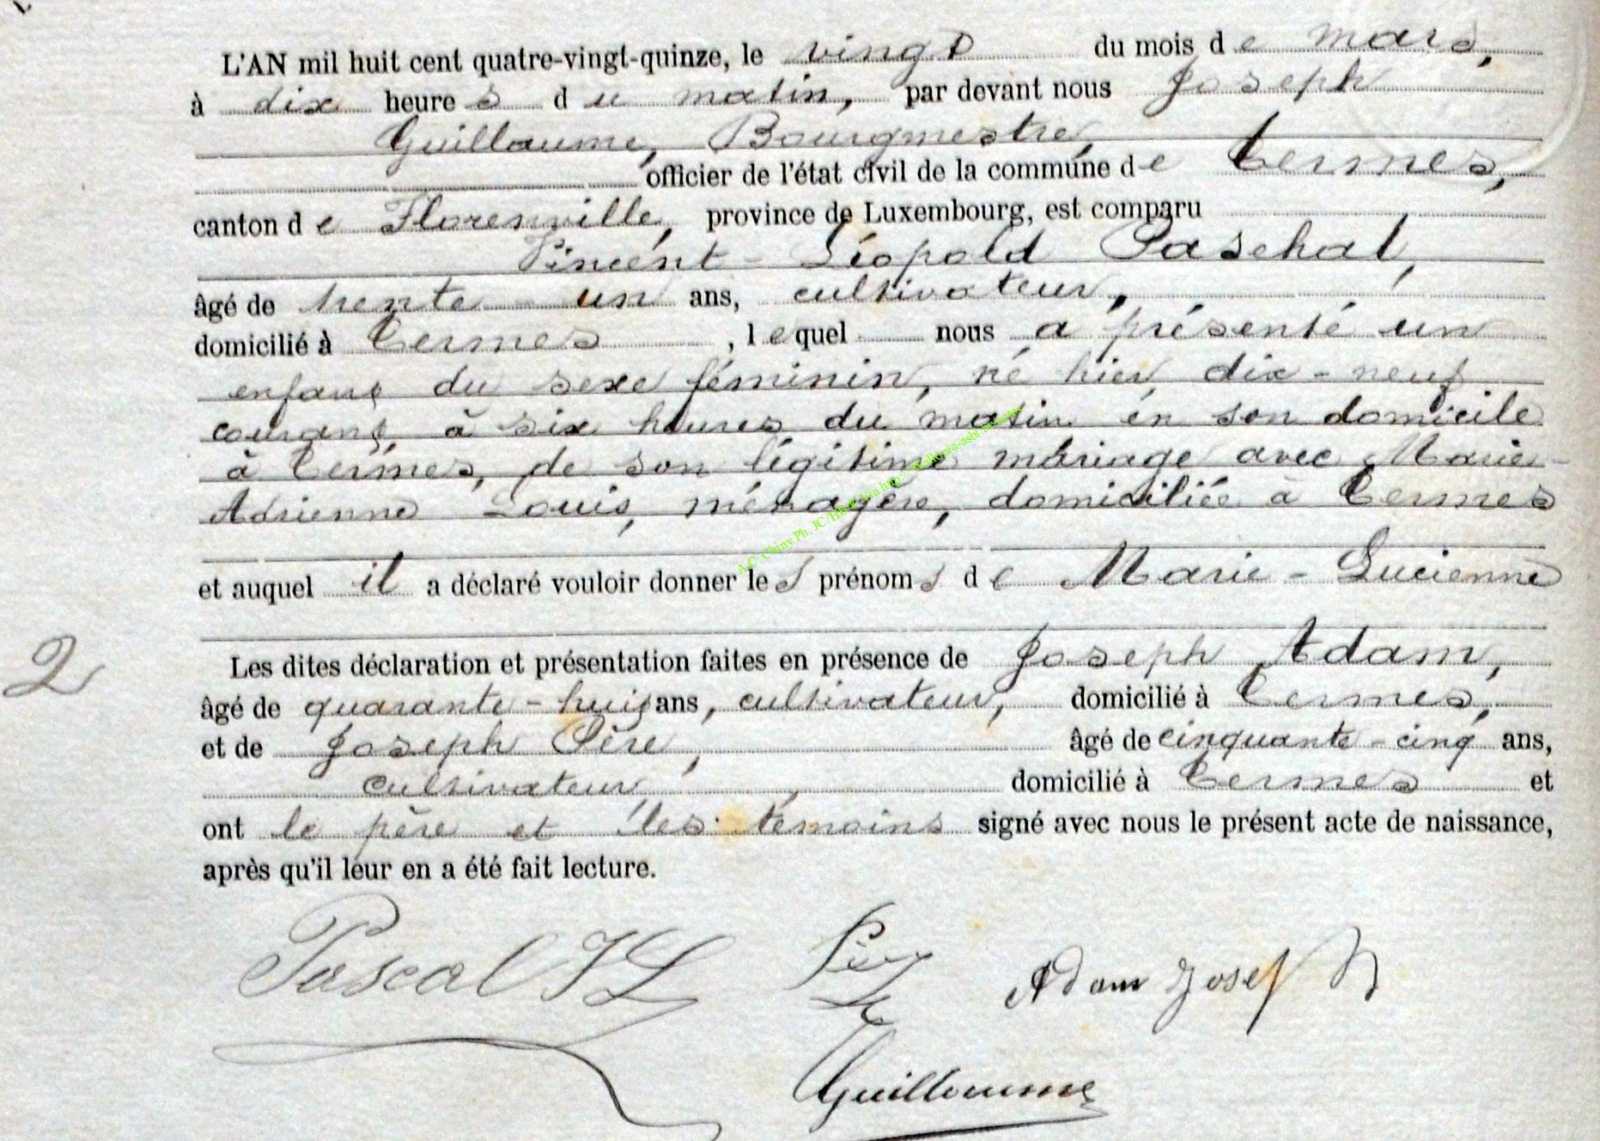 L'AN mil huit cent quatre-vingt-quinze, le vingt du mois de mars,
à dix heures du matin, par devant nous Joseph
Guillaume, Bourgmestre,
officier de l'état civil de la commune de Termes,
canton de Florenville, province de Luxembourg, est comparu
Vincent-Léopold Paschal,
âgé de trente-un ans, cultivateur,
domicilié à Termes, lequel nous a présenté un
enfant du sexe féminin, né hier, dix-neuf
courant, à six heures du matin en son domicile
à Termes, de son légitime mariage avec Marie-
Adrienne Louis, ménagère, domiciliée à Termes
et auquel il a déclaré vouloir donner les prénoms de Marie-Lucienne
2
Les dites déclaration et présentation faites en présence de Joseph Adam,
âgé de quarante-huit ans, cultivateur, domicilié à Termes,
et de Joseph Père, âgé de cinquante-cinq ans,
cultivateur domicilié à Termes et
ont le père et les témoins signé avec nous le présent acte de naissance,
après qu'il leur en a été fait lecture.
Pascal Adam Josef
Guillaume